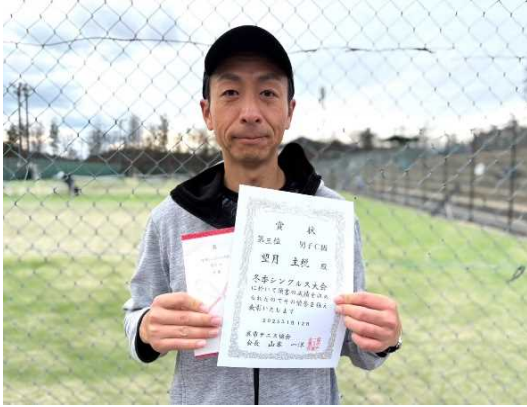 賞 状
第三位 男子C級
望月 主税 殿
冬季シングルス大会
において頭書の成績を収め
られたのでその栄誉を称え
表彰いたします
会長 山本 一洋